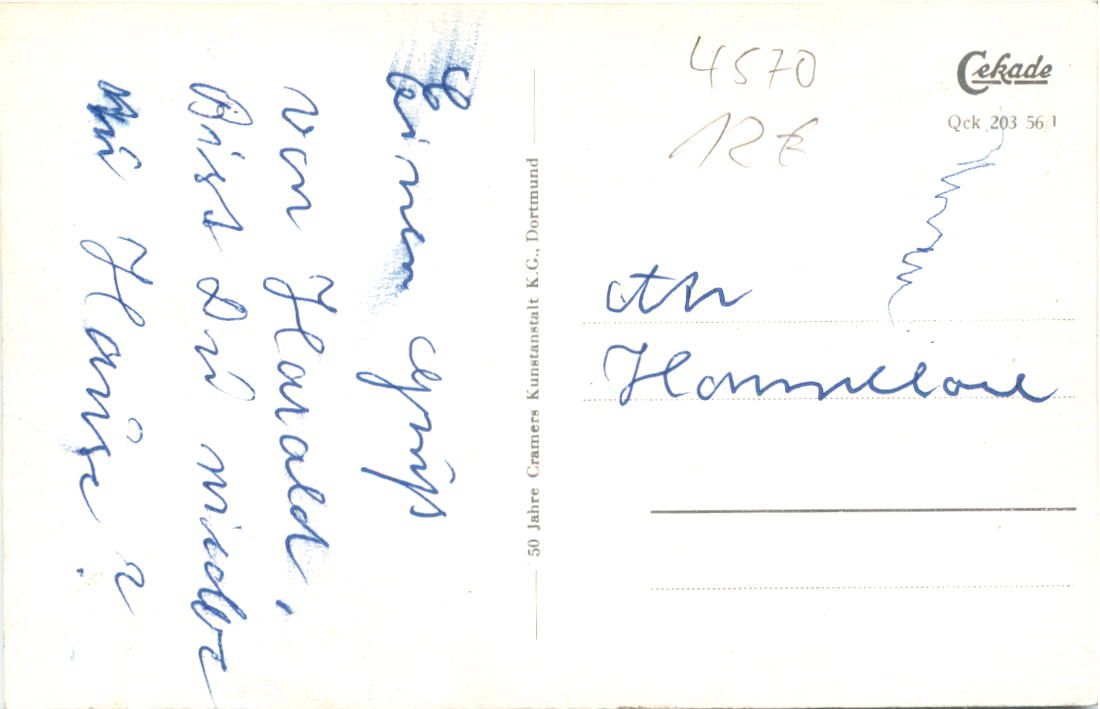 Einen Gruß
von Harald,
Bist Du wieder
zu Hause?
50 Jahre Cramers Kunstanstalt K.G., Dortmund
4570
12 €
Cekade
Qck 203 56 1
An
Hannelore